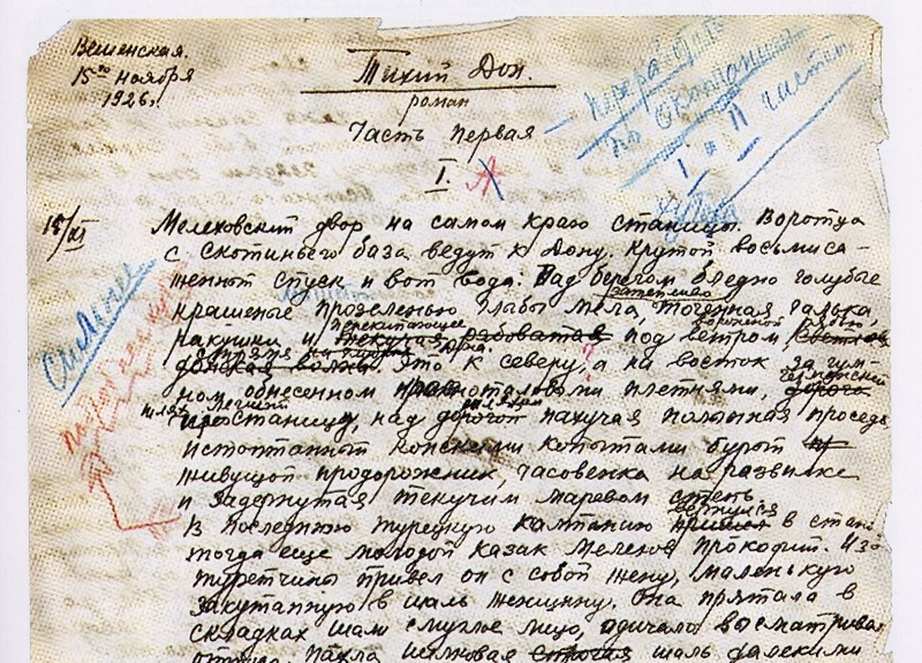 Вешенская.
15го ноября
1926г.
Тихий Дон.
роман
Часть первая
I.
переработать
по окончании
I и II частей
15/XI
Сильнее
Мелеховский двор на самом краю станицы. Воротца
с скотиньего база ведут к Дону. Крутой восьмиса-
женный спуск и вот вода: Над берегом бледно голубые
затейливо
крашеные прозеленью глыбы мела, точенная галька,
перекипающее
ракушки и текучая рябоватая под ветром
донская волна. Это к северу, а на восток за гум-
ном обнесенном красноталовыми плетнями, дорога
станицу, над дорогой пахучая полынная проседь
истоптанный конскими копытами бурый
живущой придорожник, часовенка на развилке
и задернутая текучим маревом степь
вернулся
В последнюю турецкую кампанию пришел в стан
тогда еще молодой казак Мелехов Прокофий. Из
туретчины привел он с собой жену, маленькую
закутанную в шаль женщину. Она прятала в
складках шали смуглое лицо, одичало высматривая
оттуда. Пахла шелковая строгая шаль далекими